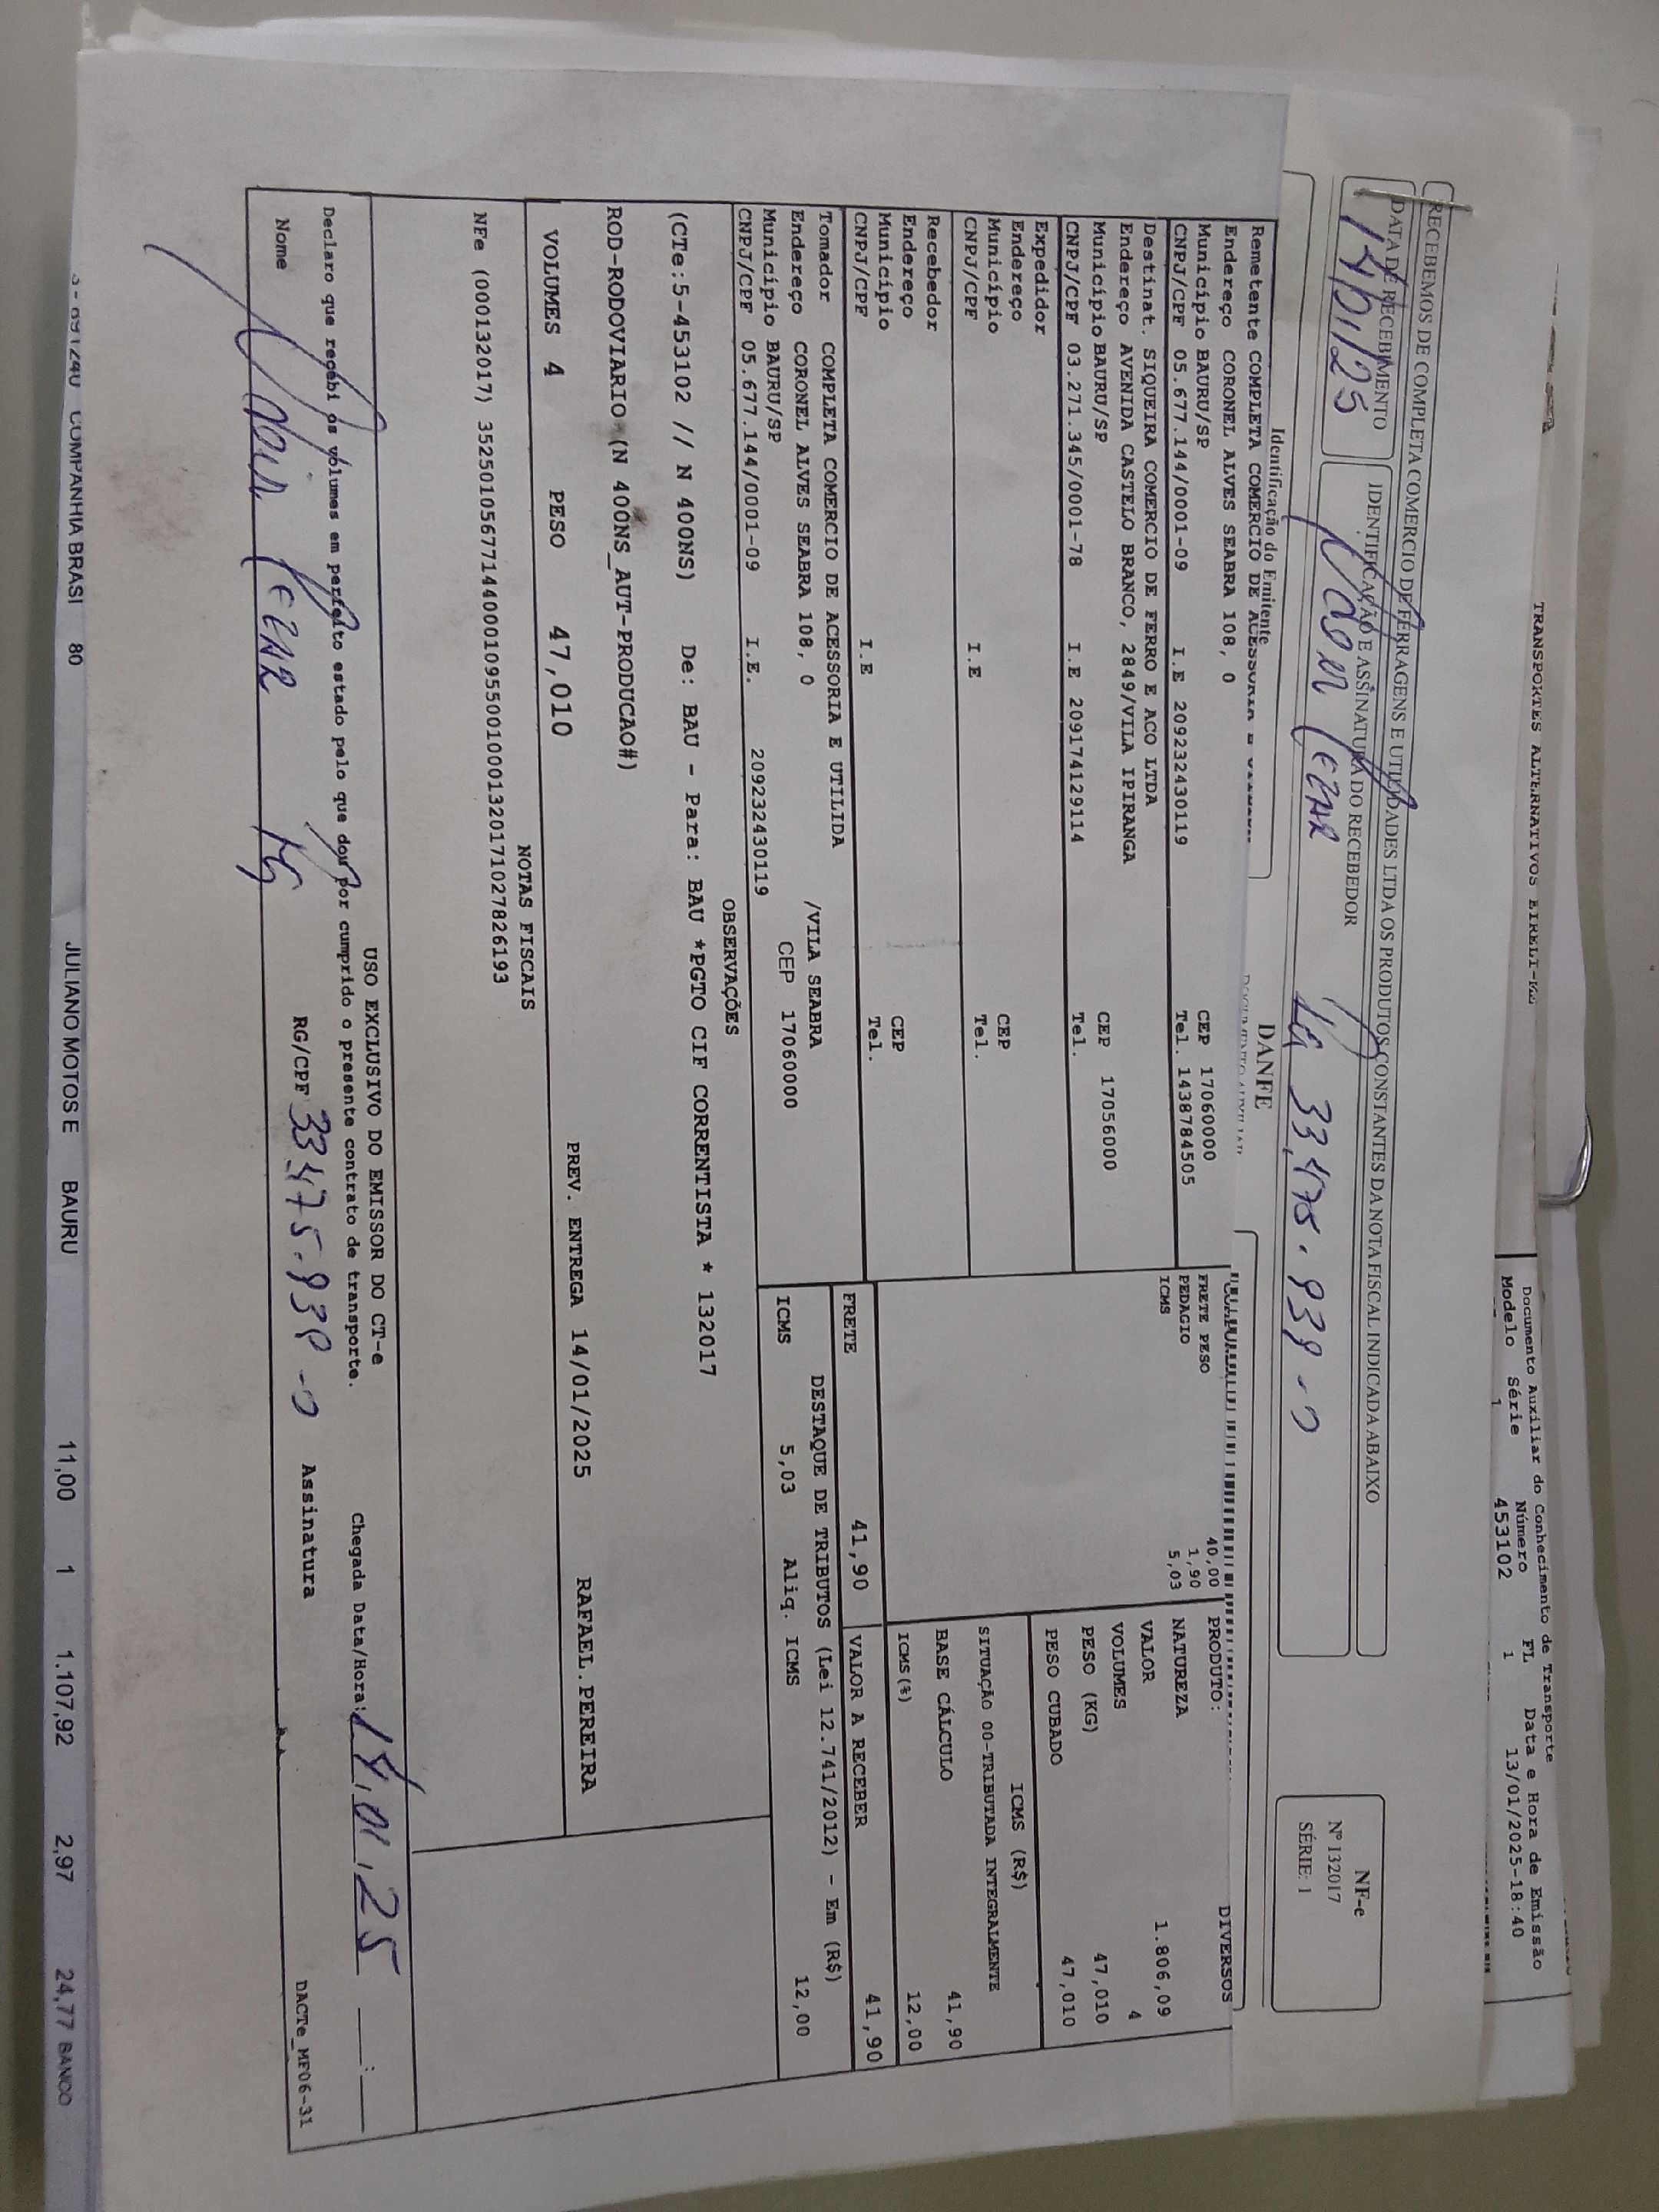 TRANSPORTES ALTERNATIVOS EIRELI-ME
Documento Auxiliar do Conhecimento de Transporte
Modelo Série Número FL Data e Hora de Emissão
1 453102 1 13/01/2025-18:40
RECEBEMOS DE COMPLETA COMERCIO DE FERRAGENS E UTILIDADES LTDA OS PRODUTOS CONSTANTES DA NOTA FISCAL INDICADA ABAIXO
DATA DE RECEBIMENTO
IDENTIFICAÇÃO E ASSINATURA DO RECEBEDOR
14/01/25
33.475.939-0
NF-e
Nº 132017
SÉRIE: 1
Identificação do Emitente
DANFE
Remetente COMPLETA COMERCIO DE
Endereço CORONEL ALVES SEABRA 108, 0
Município BAURU/SP CEP 17060000
CNPJ/CPF 05.677.144/0001-09 I.E 209232430119 Tel. 1438784505
Destinat. SIQUEIRA COMERCIO DE FERRO E ACO LTDA
Endereço AVENIDA CASTELO BRANCO, 2849/VILA IPIRANGA
Município BAURU/SP CEP 17056000
CNPJ/CPF 03.271.345/0001-78 I.E 209174129114 Tel.
Expedidor
Endereço
Município CEP
CNPJ/CPF I.E Tel.
Recebedor
Endereço
Município CEP
CNPJ/CPF I.E Tel.
Tomador COMPLETA COMERCIO DE ACESSORIA E UTILIDA
Endereço CORONEL ALVES SEABRA 108, 0 /VILA SEABRA
Município BAURU/SP CEP 17060000
CNPJ/CPF 05.677.144/0001-09 I.E. 209232430119
FRETE PESO 40,00
PEDAGIO 1,90
ICMS 5,03
PRODUTO: DIVERSOS
NATUREZA
VALOR 1.806,09
VOLUMES 4
PESO (KG) 47,010
PESO CUBADO 47,010
ICMS (R$)
SITUAÇÃO 00-TRIBUTADA INTEGRALMENTE
BASE CÁLCULO 41,90
ICMS(%) 12,00
FRETE 41,90 VALOR A RECEBER 41,90
DESTAQUE DE TRIBUTOS (Lei 12.741/2012) - Em (R$)
ICMS 5,03 Aliq. ICMS 12,00
OBSERVAÇÕES
(CTe:5-453102 // N 400NS) De: BAU - Para: BAU *PGTO CIF CORRENTISTA * 132017
ROD-RODOVIARIO (N 400NS_AUT-PRODUCAO#)
VOLUMES 4 PESO 47,010 PREV. ENTREGA 14/01/2025 RAFAEL.PEREIRA
NOTAS FISCAIS
NFe (000132017) 35250105677144000109550010001320171027826193
USO EXCLUSIVO DO EMISSOR DO CT-e
Declaro que recebi os volumes em perfeito estado pelo que dou por cumprido o presente contrato de transporte.
Chegada Data/Hora: 14/01/25 __:__
Nome RG/CPF 33.475.939-0 Assinatura
DACTe_MF06-31
COMPANHIA BRASI 80 JULIANO MOTOS E BAURU 11,00 1 1.107,92 2,97 24,77 BANCO